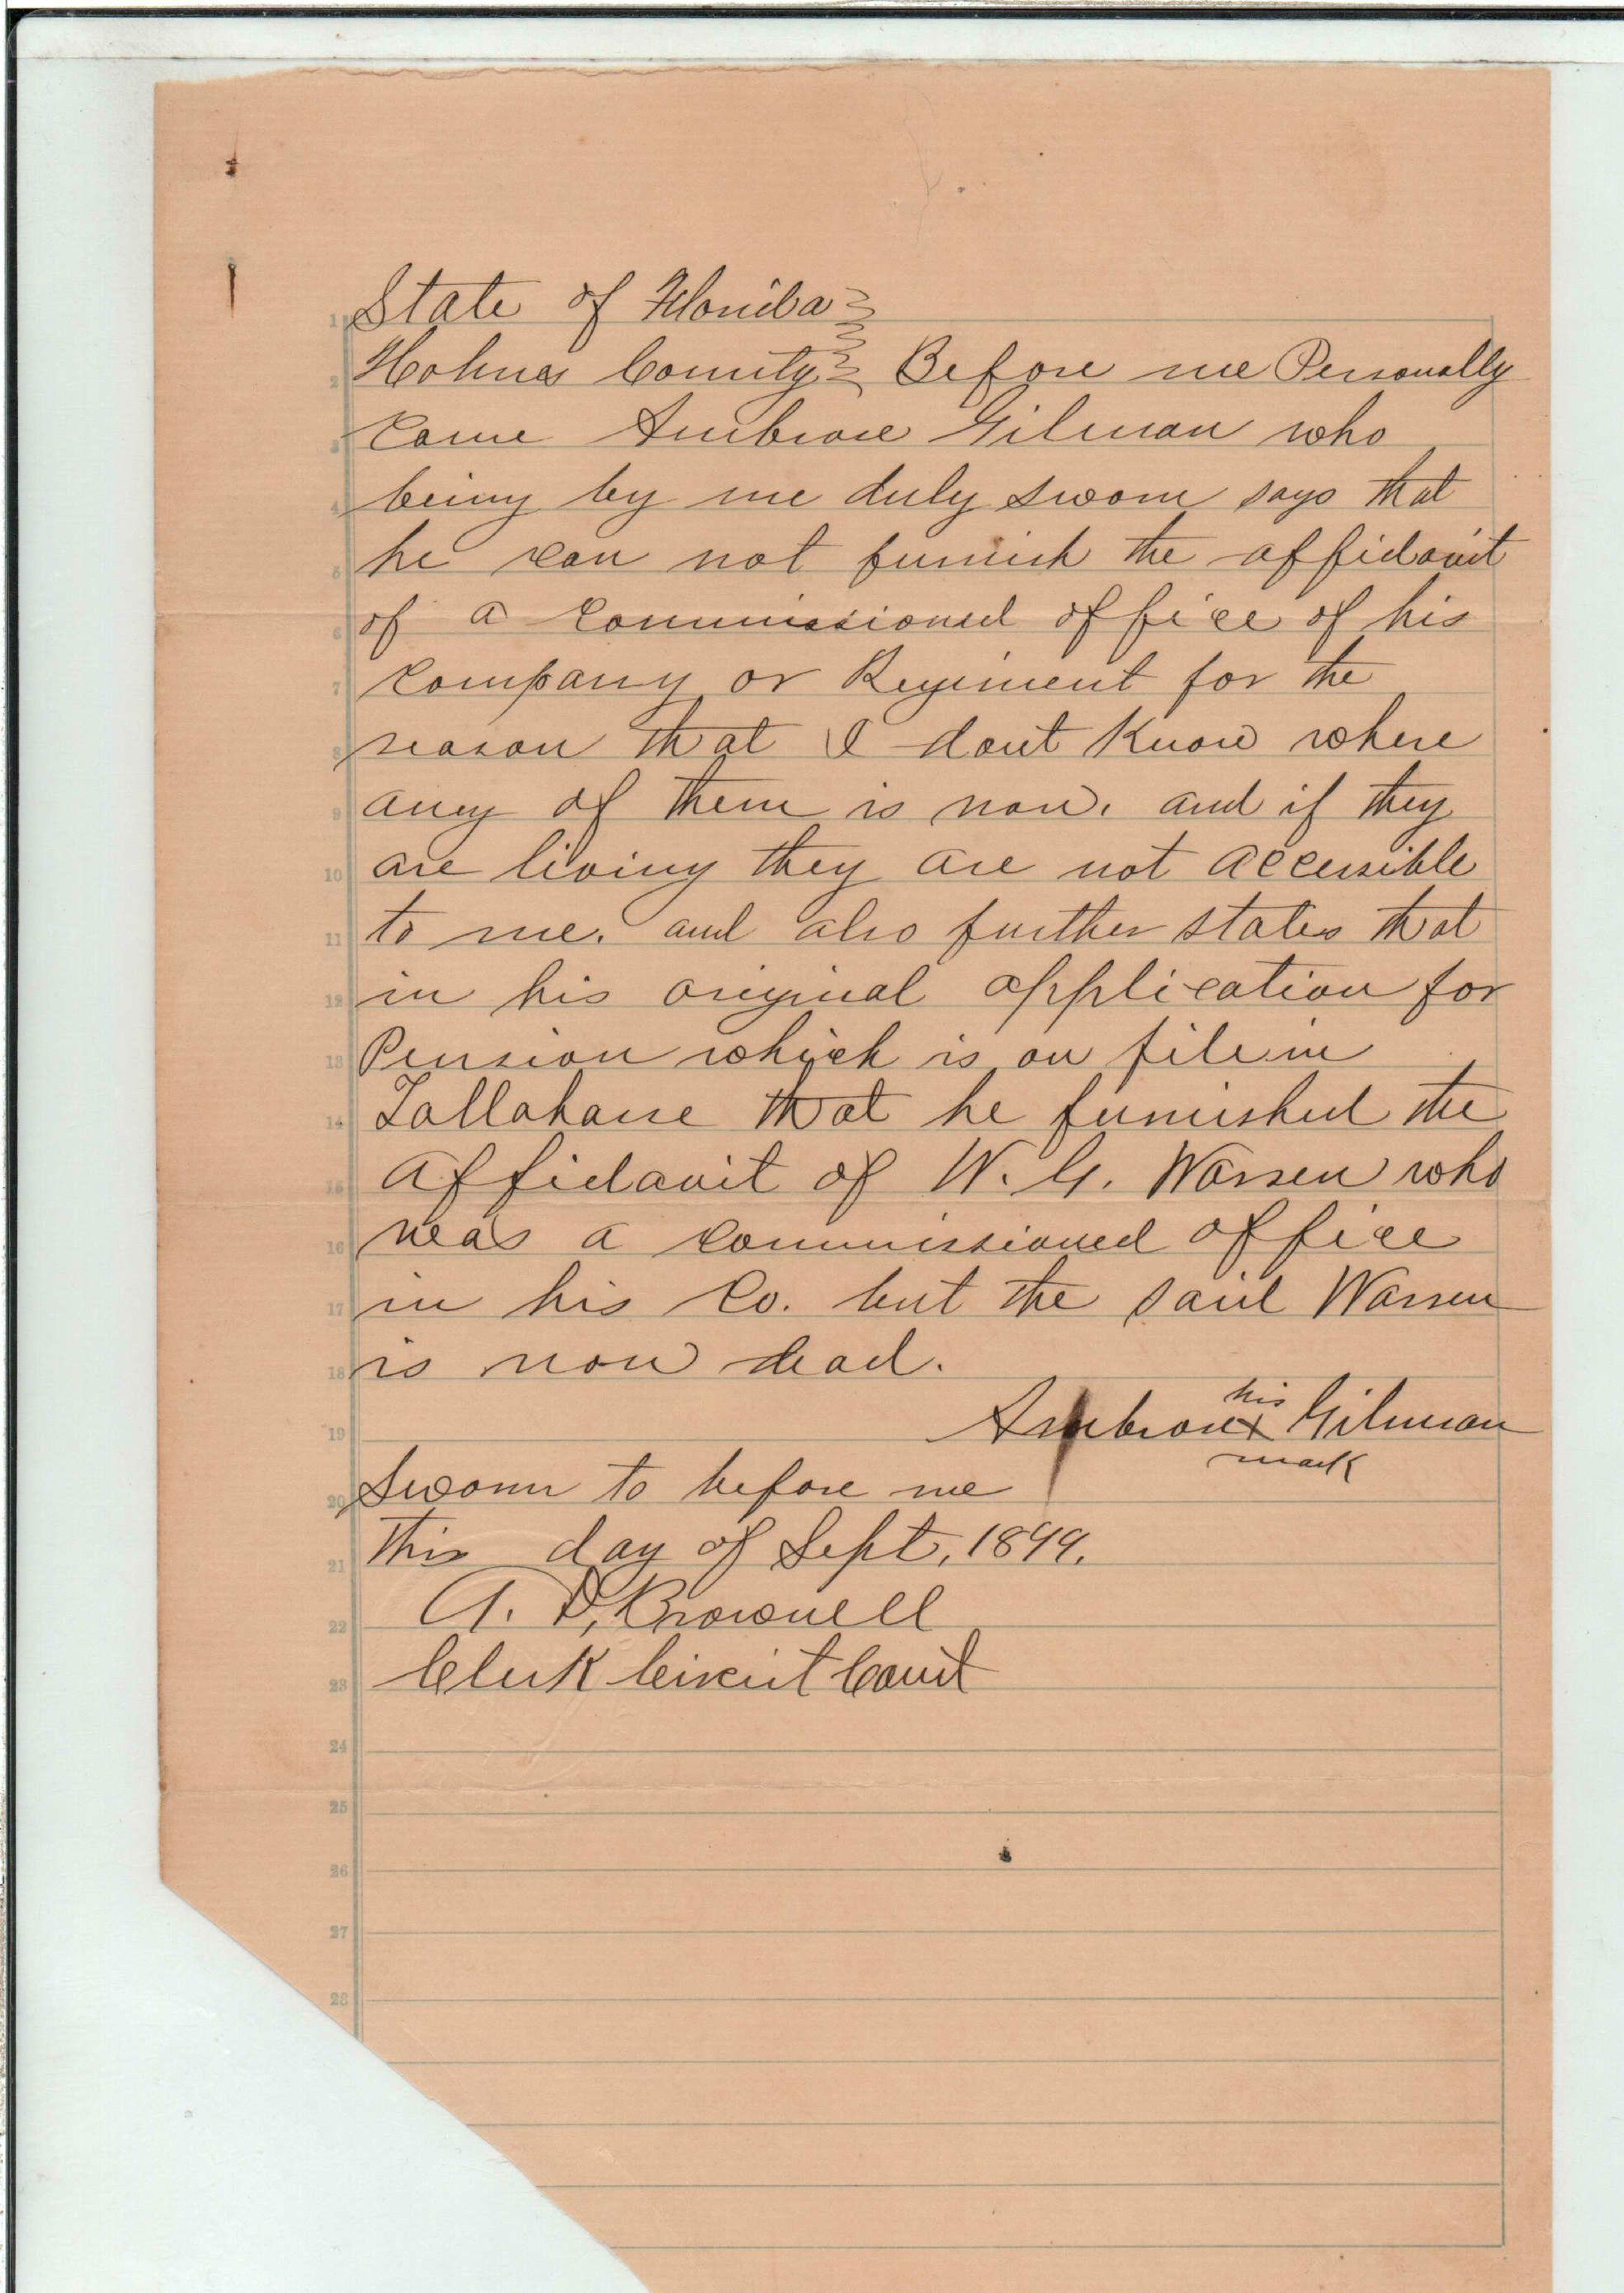 State of Florida
Holmes County Before me Personally
Came Ambrose Gilman who
being by me duly sworn says that
he can not furnish the affidavit
of a Commissioned office of his
Company or Regiment for the
reason that I dont Know where
any of them is now. and if they
are living they are not accessible
to me. and also further states that
in his original application for
Pension which is on file in
Tallahasse that he furnished the
affidavit of W. G. Warren who
was a commissioned office
in his Co. but the said Warren
is now dead.
his
Ambrose x Gilman
mark
Sworn to before me
this day of Sept, 1899.
A. D, Brownell
Clerk Circuit Court
1
2
3
4
5
6
7
8
9
10
11
12
13
14
15
16
17
18
19
20
21
22
23
24
25
26
27
28